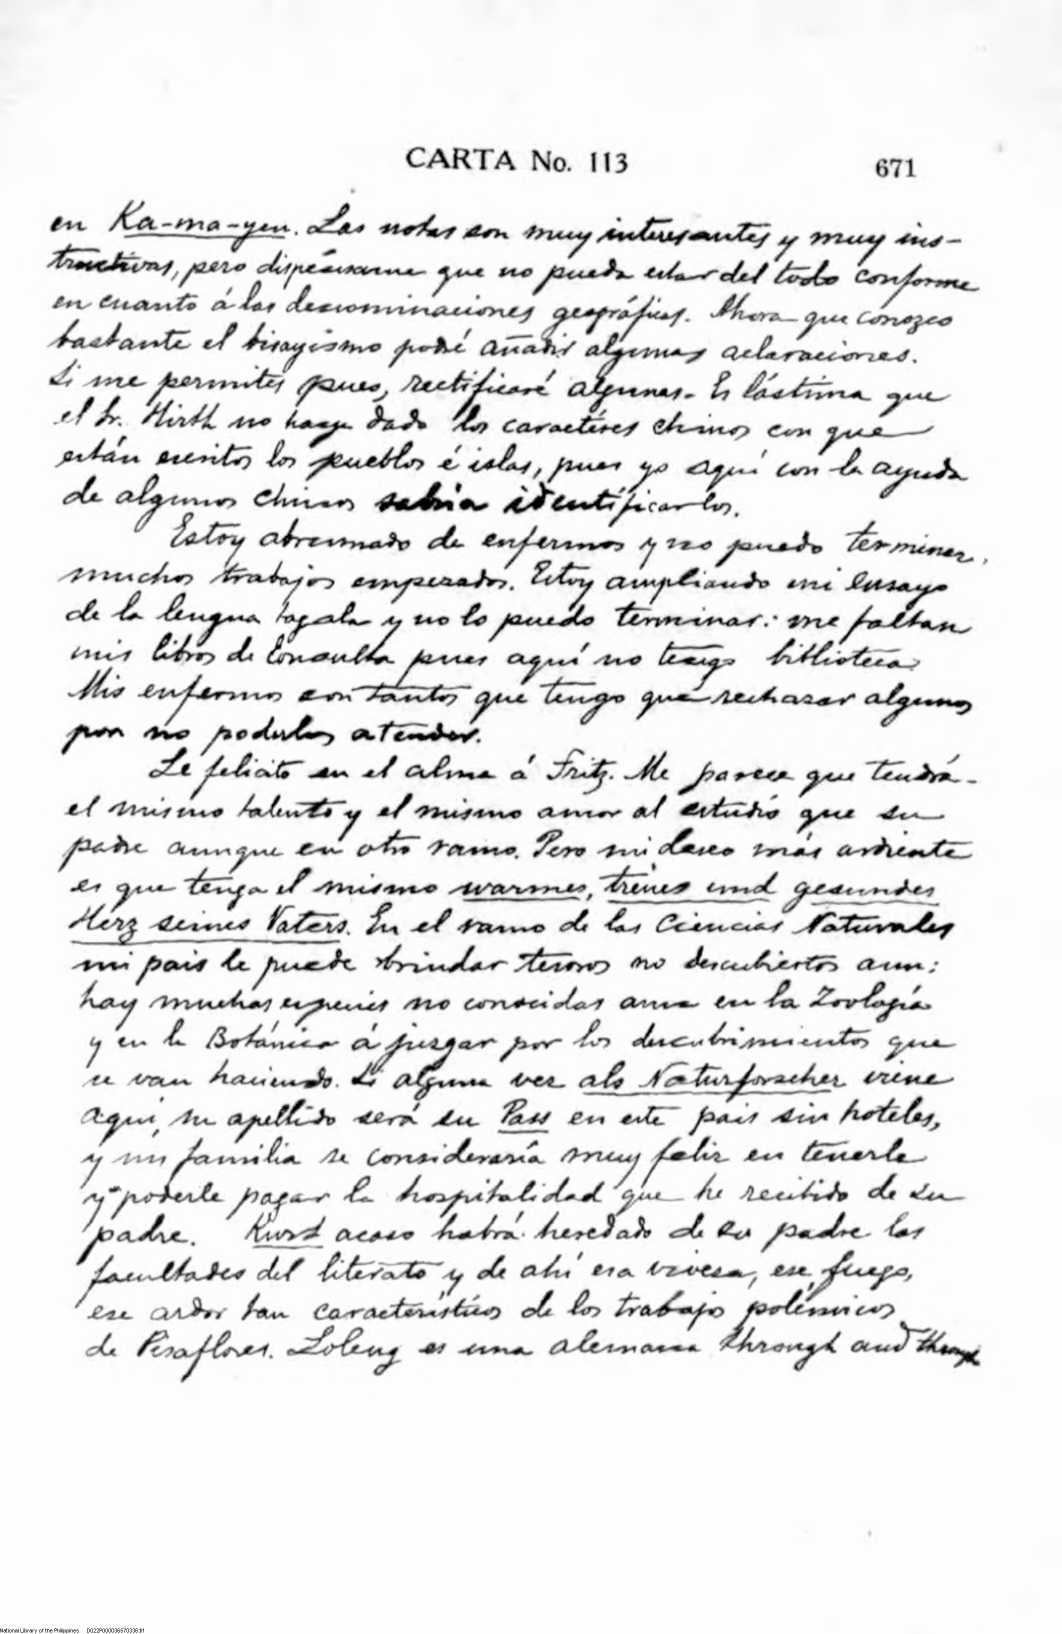 CARTA No. 113
671
en Ka-ma-yen. Las notas son muy interesantes y muy ins-
tructivas, pero dispénseme que no pueda estar del todo conforme
en cuanto á las denominaciones geográficas. Ahora que conozco
bastante el bisayismo podré añadir algunas aclaraciones.
Si me permites pues, rectificaré algunas. Es lástima que
el Sr. Hirth no haya dado los caractéres chinos con que
están escritos los pueblos é islas, pues yo aquí con la ayuda
de algunos chinos sabría identificarlos.
Estoy abrumado de enfermos y no puedo terminar
muchos trabajos empezados. Estoy ampliando mi Ensayo
de la lengua tagala y no lo puedo terminar: me faltan
mis libros de Consulta pues aquí no tengo biblioteca.
Mis enfermos son tantos que tengo que rechazar algunos
por no poderlos atender.
Le felicito en el alma á Fritz. Me parece que tendrá
el mismo talento y el mismo amor al estudio que su
padre aunque en otro ramo. Pero mi deseo más ardiente
es que tenga el mismo warmes, treues und gesundes
Herz seines Vaters. En el ramo de las Ciencias Naturales
mi pais le puede brindar tesoros no descubiertos aun:
hay muchas especies no conocidas aun en la Zoología
y en la Botánica á juzgar por los descubrimientos que
se van haciendo. Si alguna vez als Naturforscher viene
aquí, su apellido será su Pass en este pais sin hoteles,
y mi familia se consideraría muy feliz en tenerle
y poderle pagar la hospitalidad que he recibido de su
padre. Kurt acaso habrá heredado de su padre las
facultades del literato y de ahí esa viveza, ese fuego,
ese ardor tan característico de los trabajos polémicos
de Pesaflores. Loleng es una alemana through and through
National Library of the Philippines